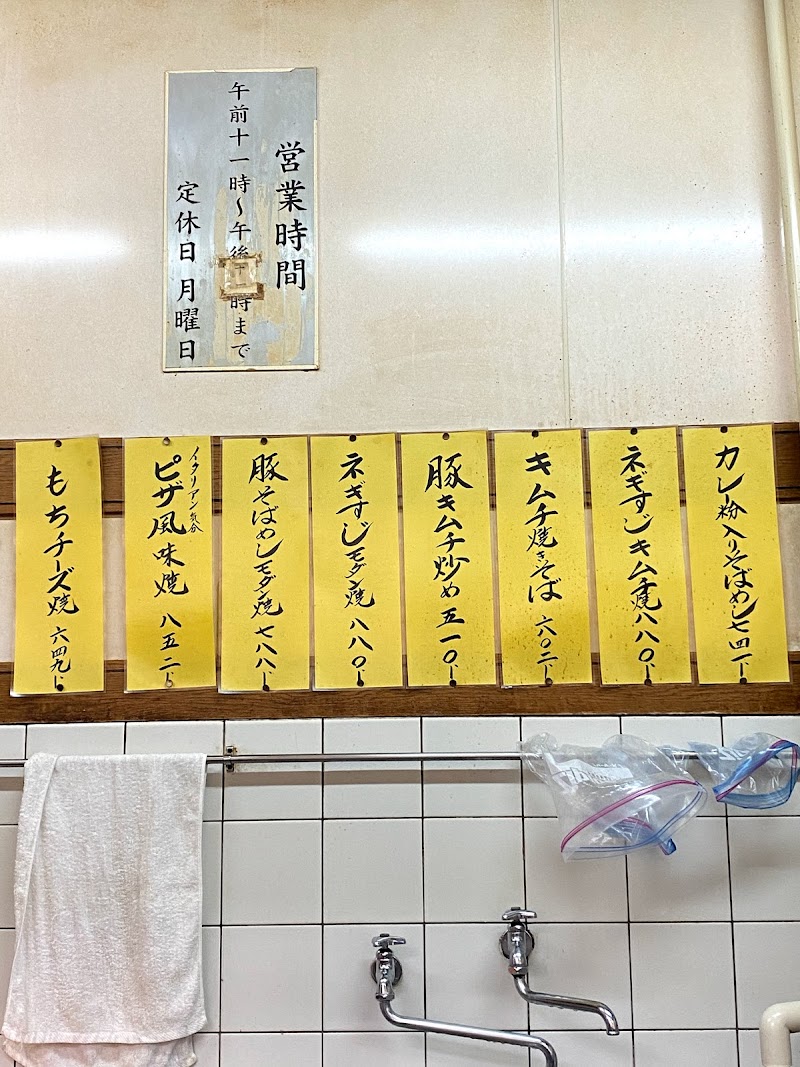 営業時間
午前十一時〜午後 時まで
定休日 月曜日
カレー粉入りそばめし七四一
ネぎすじキムチ焼八八〇
キムチ焼きそば 六八二
豚キムチ炒め 五一〇
ネぎすじモダン焼 八八〇
豚そばめしモダン焼 七八八
イタリアン気分
ピザ風味焼 八五二
もちチーズ焼 六四九